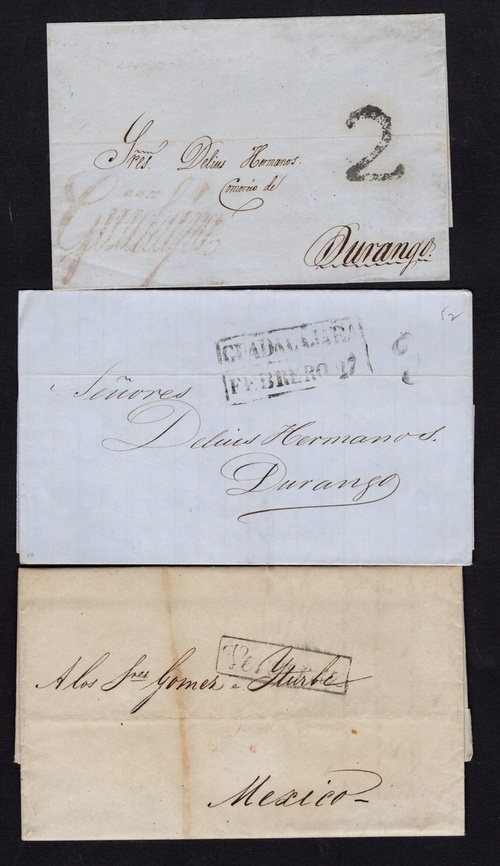 2
Sres. Delius Hermanos.
Comercio de
Durango.
GUADALAJARA
FEBRERO 27
Señores
Delius Hermanos.
Durango
A los Sres Gomez e Yturbe
Mexico